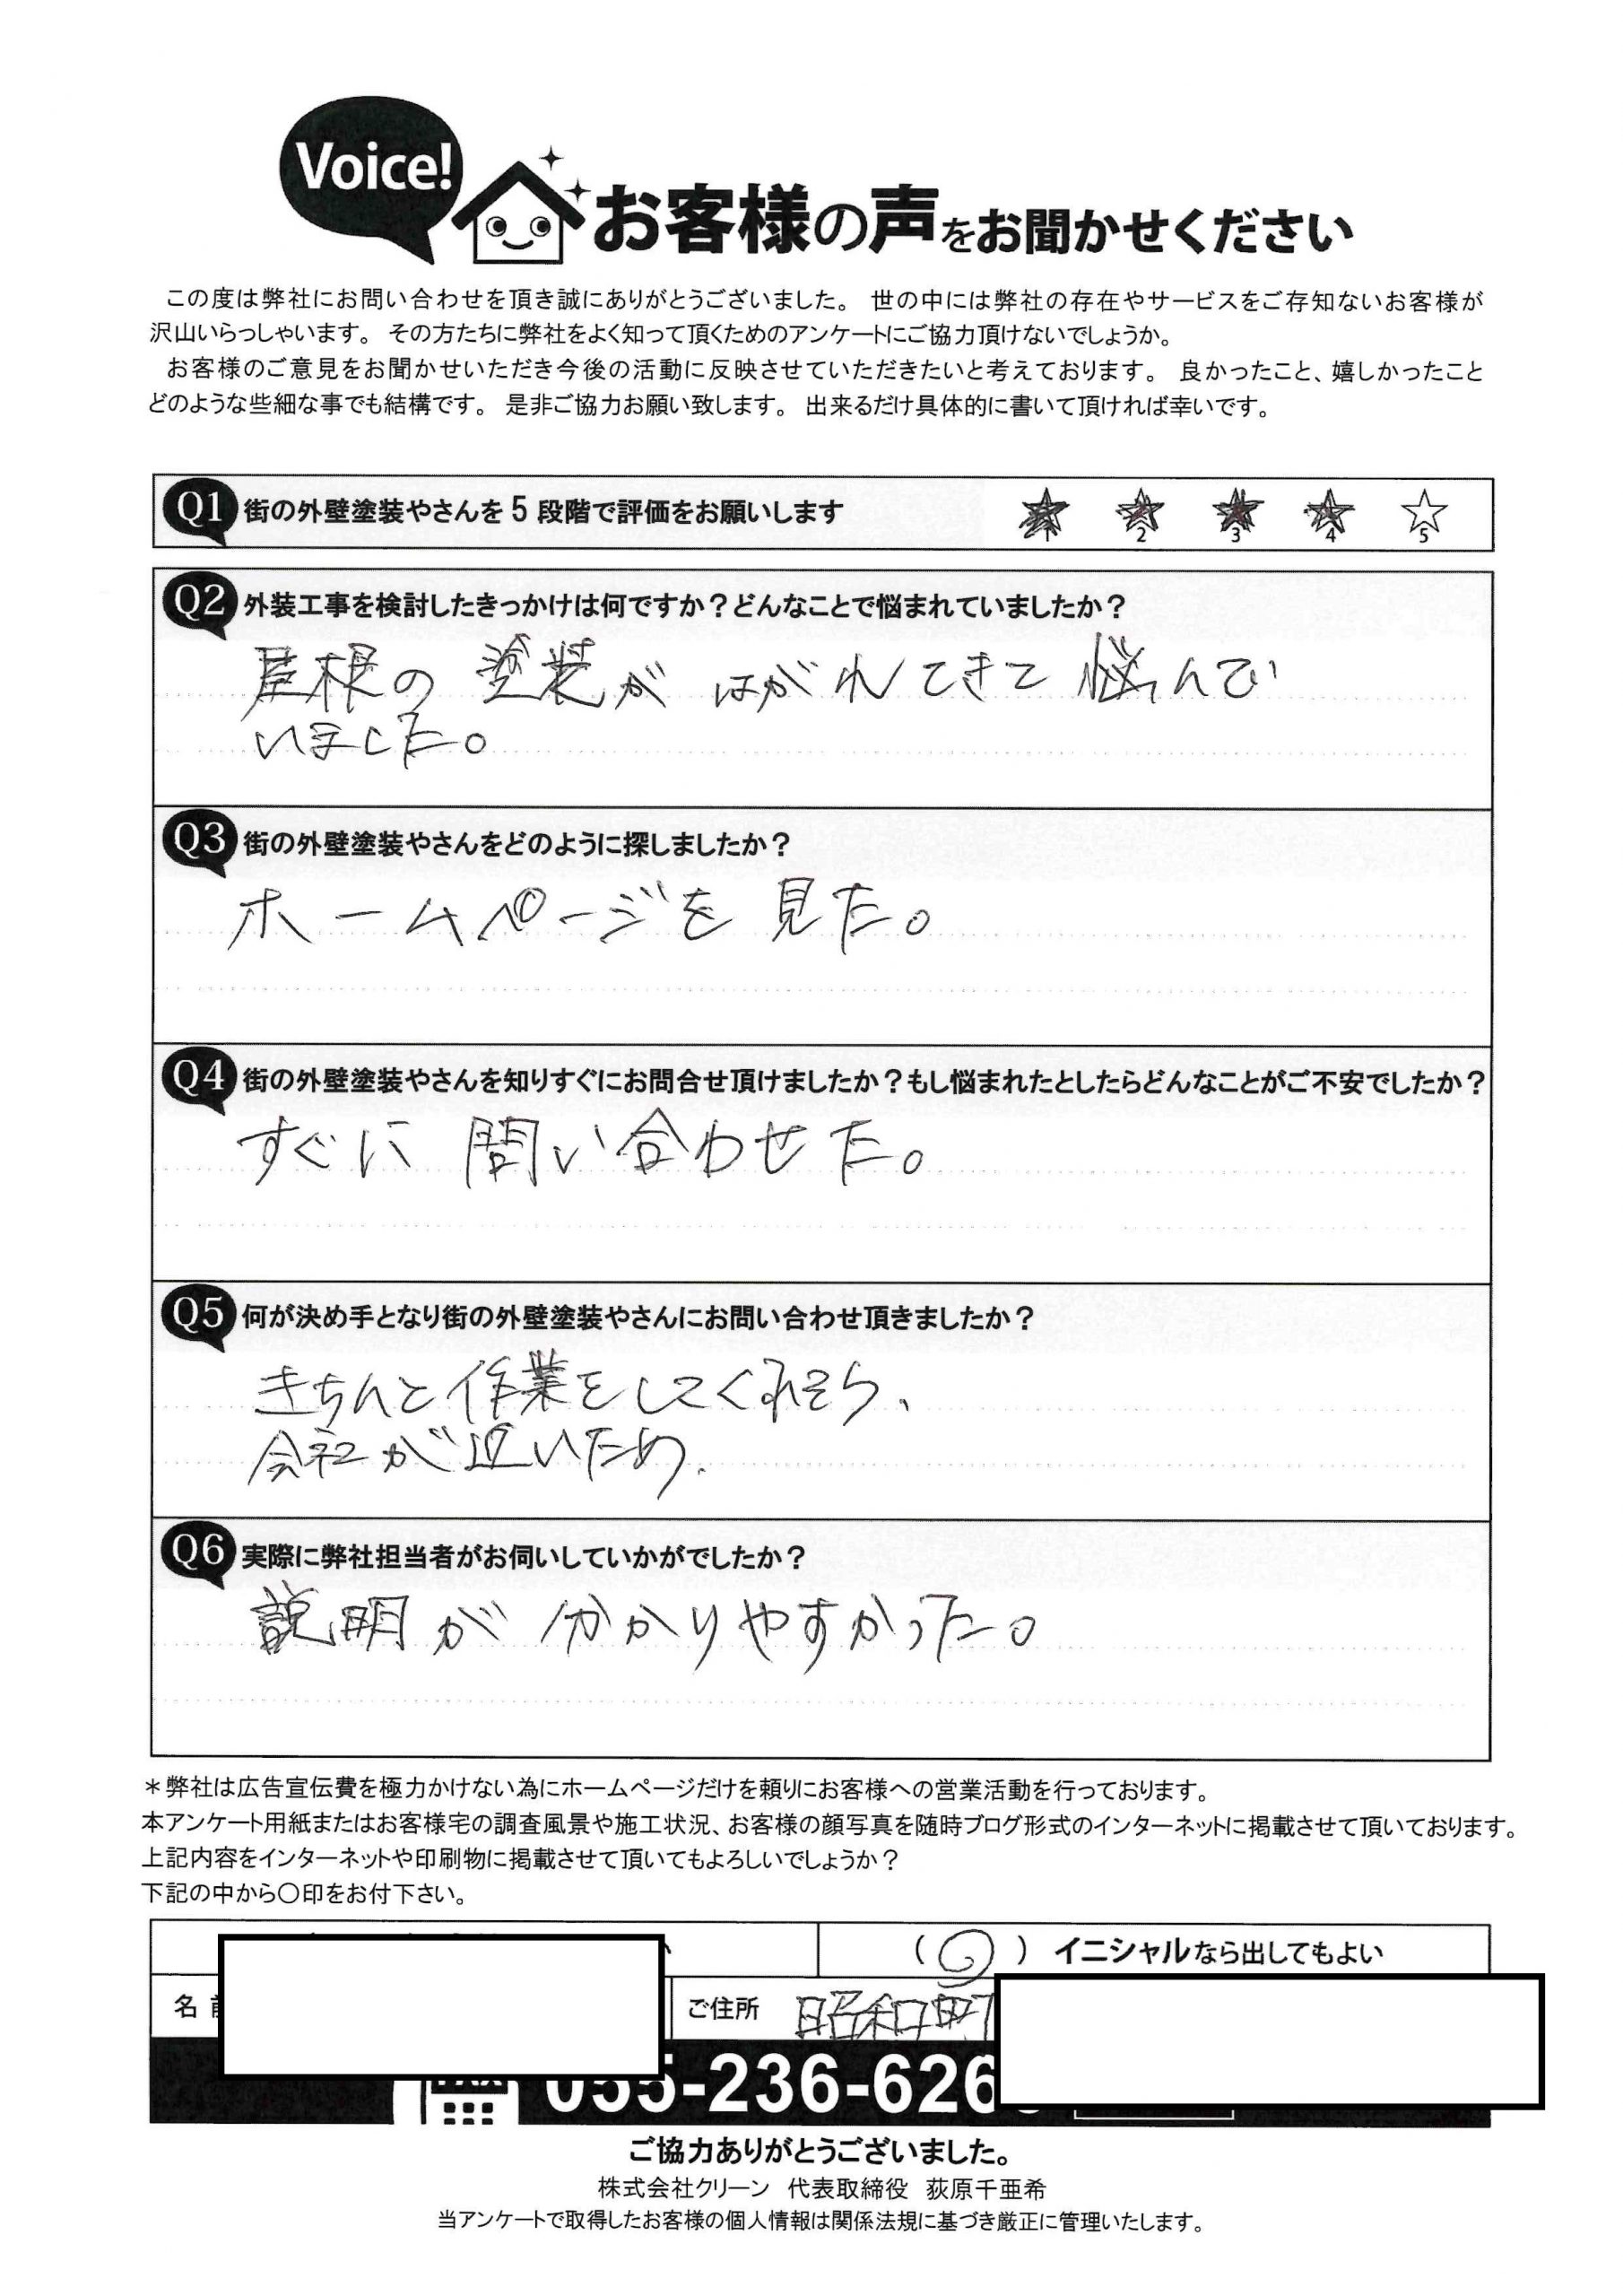 Voice!
お客様の声をお聞かせください
この度は弊社にお問い合わせを頂き誠にありがとうございました。 世の中には弊社の存在やサービスをご存知ないお客様が
沢山いらっしゃいます。 その方たちに弊社をよく知って頂くためのアンケートにご協力頂けないでしょうか。
お客様のご意見をお聞かせいただき今後の活動に反映させていただきたいと考えております。 良かったこと、嬉しかったこと
どのような些細な事でも結構です。 是非ご協力お願い致します。 出来るだけ具体的に書いて頂ければ幸いです。
Q1 街の外壁塗装やさんを5段階で評価をお願いします 1 2 3 4 5
Q2 外装工事を検討したきっかけは何ですか？どんなことで悩まれていましたか？
屋根の塗装がはがれてきて悩んで
いました。
Q3 街の外壁塗装やさんをどのように探しましたか？
ホームページを見た。
Q4 街の外壁塗装やさんを知りすぐにお問合せ頂けましたか？もし悩まれたとしたらどんなことがご不安でしたか？
すぐに問い合わせた。
Q5 何が決め手となり街の外壁塗装やさんにお問い合わせ頂きましたか？
きちんと作業をしてくれそう、
会社が近いため.
Q6 実際に弊社担当者がお伺いしていかがでしたか？
説明が分かりやすかった。
＊弊社は広告宣伝費を極力かけない為にホームページだけを頼りにお客様への営業活動を行っております。
本アンケート用紙またはお客様宅の調査風景や施工状況、お客様の顔写真を随時ブログ形式のインターネットに掲載させて頂いております。
上記内容をインターネットや印刷物に掲載させて頂いてもよろしいでしょうか？
下記の中から〇印をお付下さい。
（○）イニシャルなら出してもよい
名 ご住所 昭和町
055-236-626
ご協力ありがとうございました。
株式会社クリーン 代表取締役 荻原千亜希
当アンケートで取得したお客様の個人情報は関係法規に基づき厳正に管理いたします。